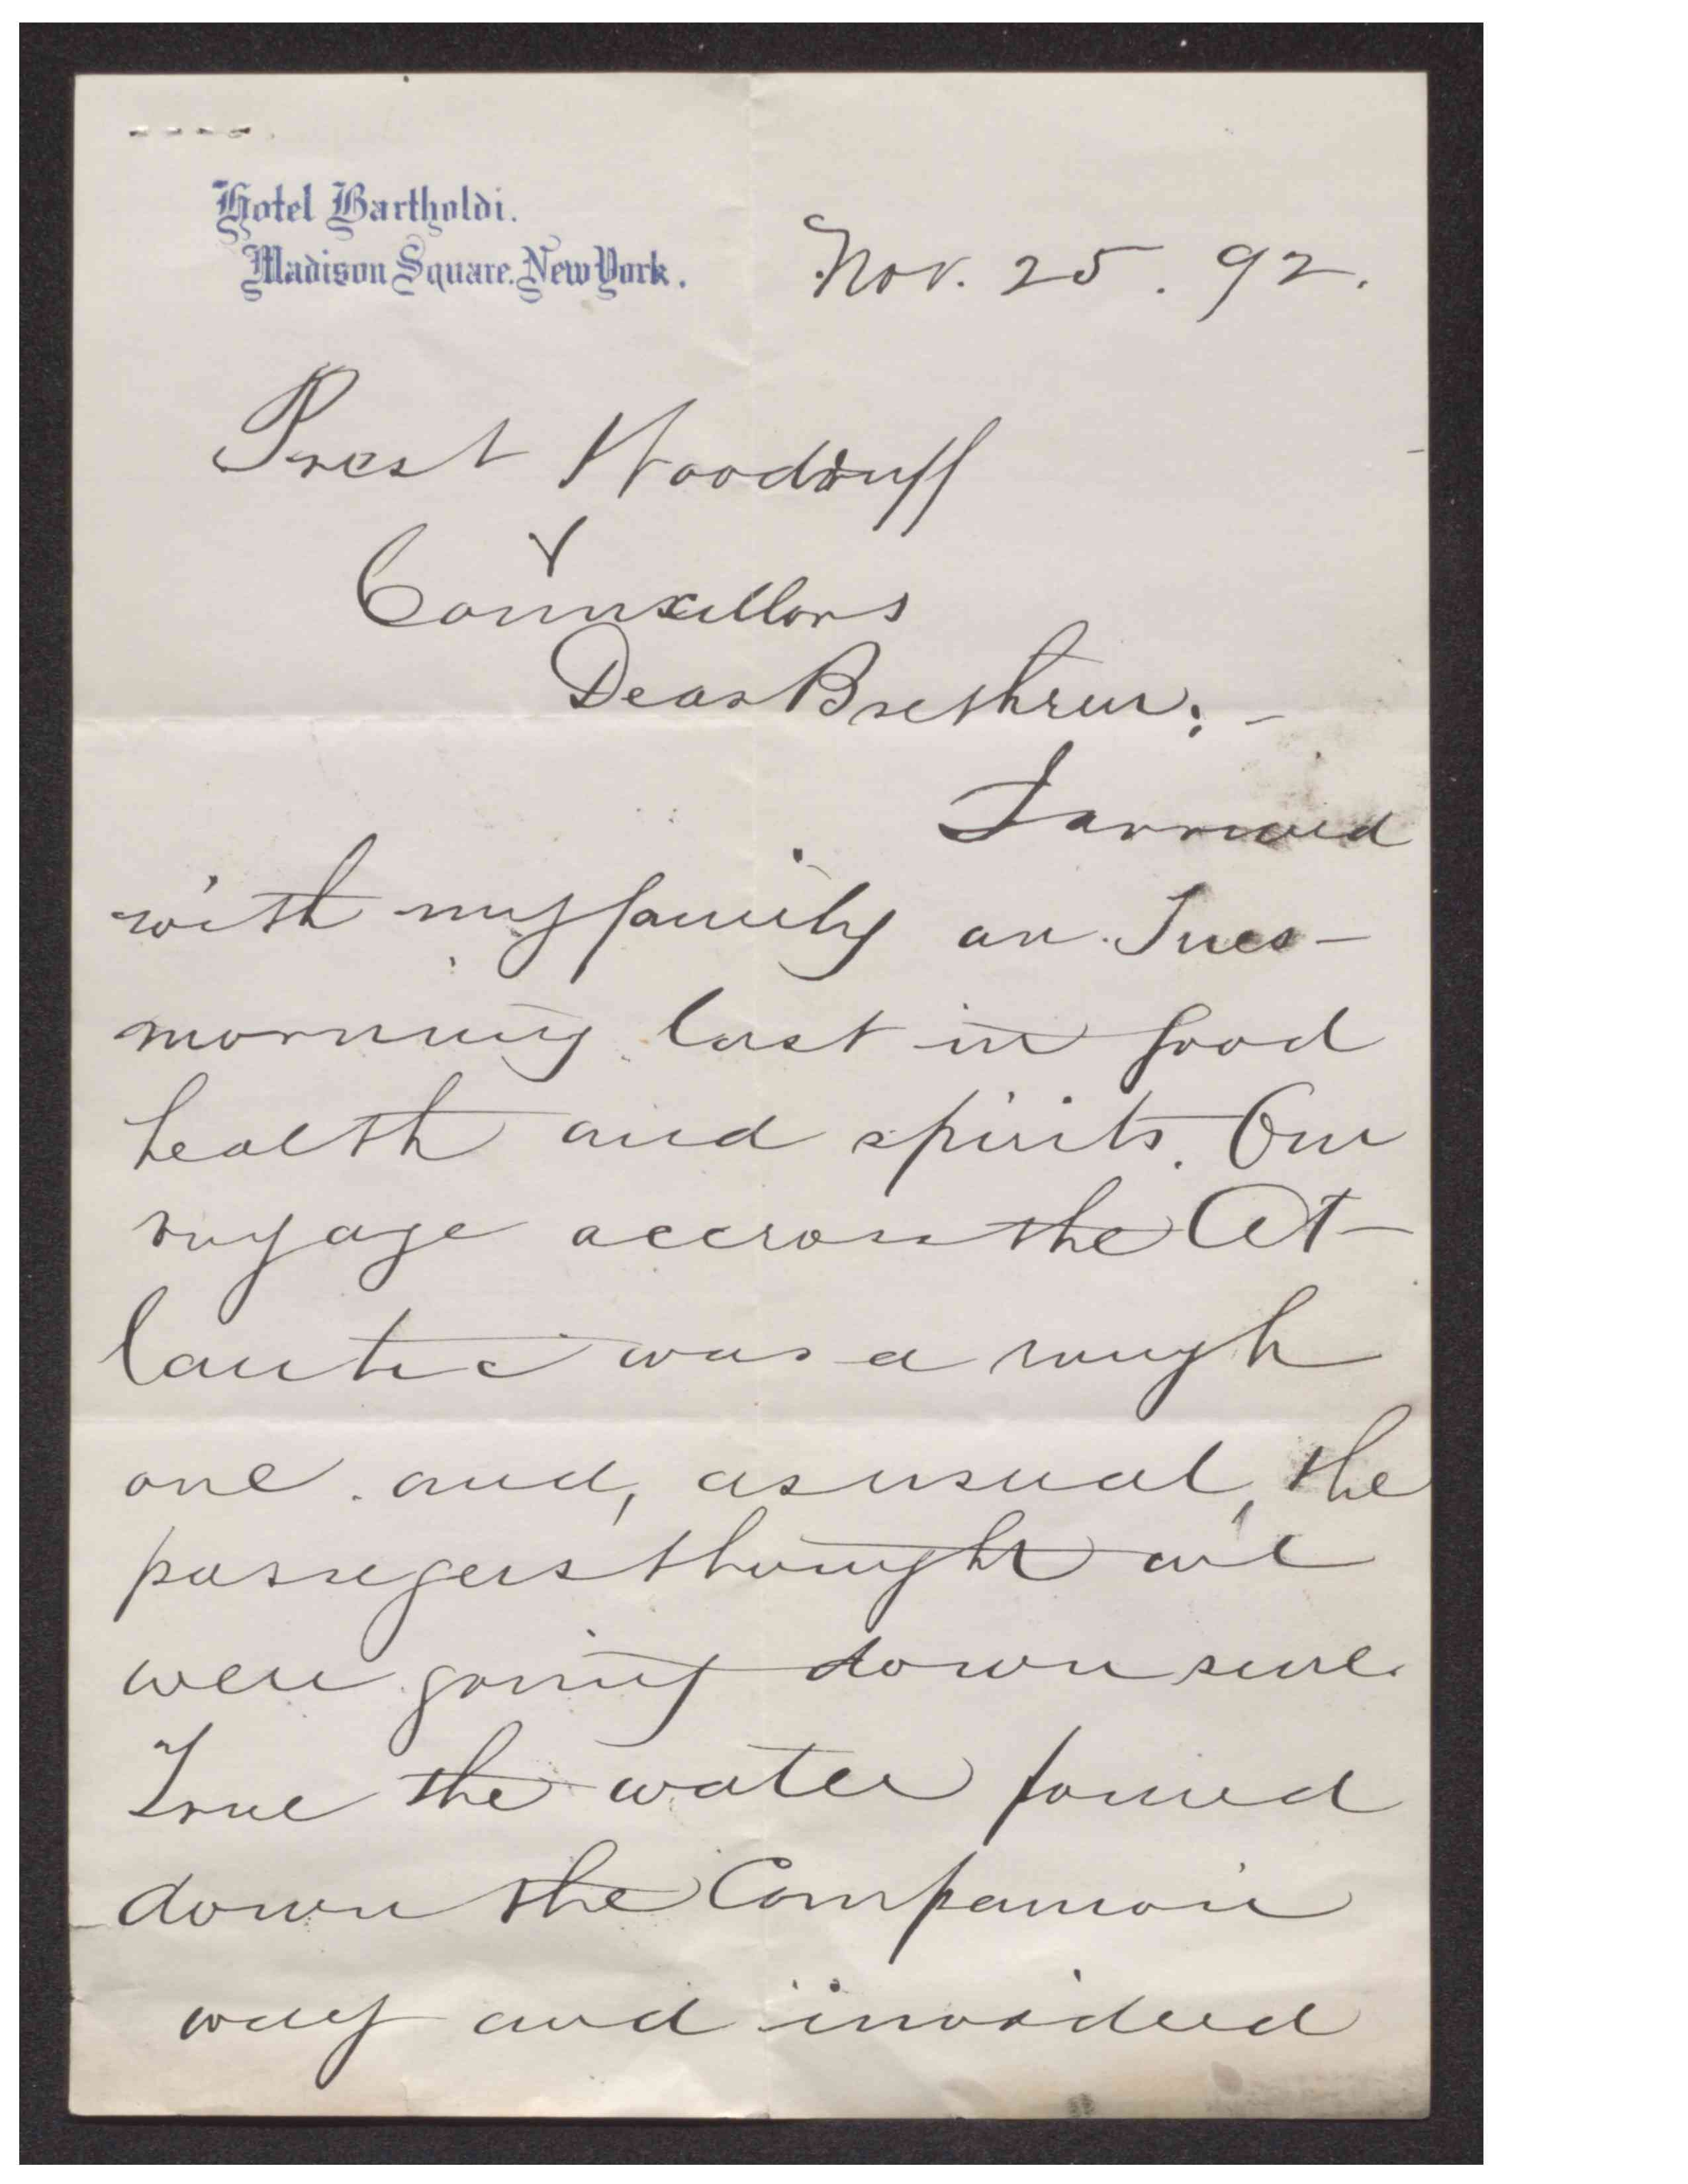 Hotel Bartholdi.
Madison Square. New York.
Nov. 25. 92.
Prest Woodruff
&
Counscellors
Dear Brethren:-
I arrived
with my family on Tues-
morning last in good
health and spirits. Our
voyage accross the At-
lantic was a rough
one. and, as usual, the
passegers thought we
were going down sure.
True the water poured
down the Companion
way and invaded